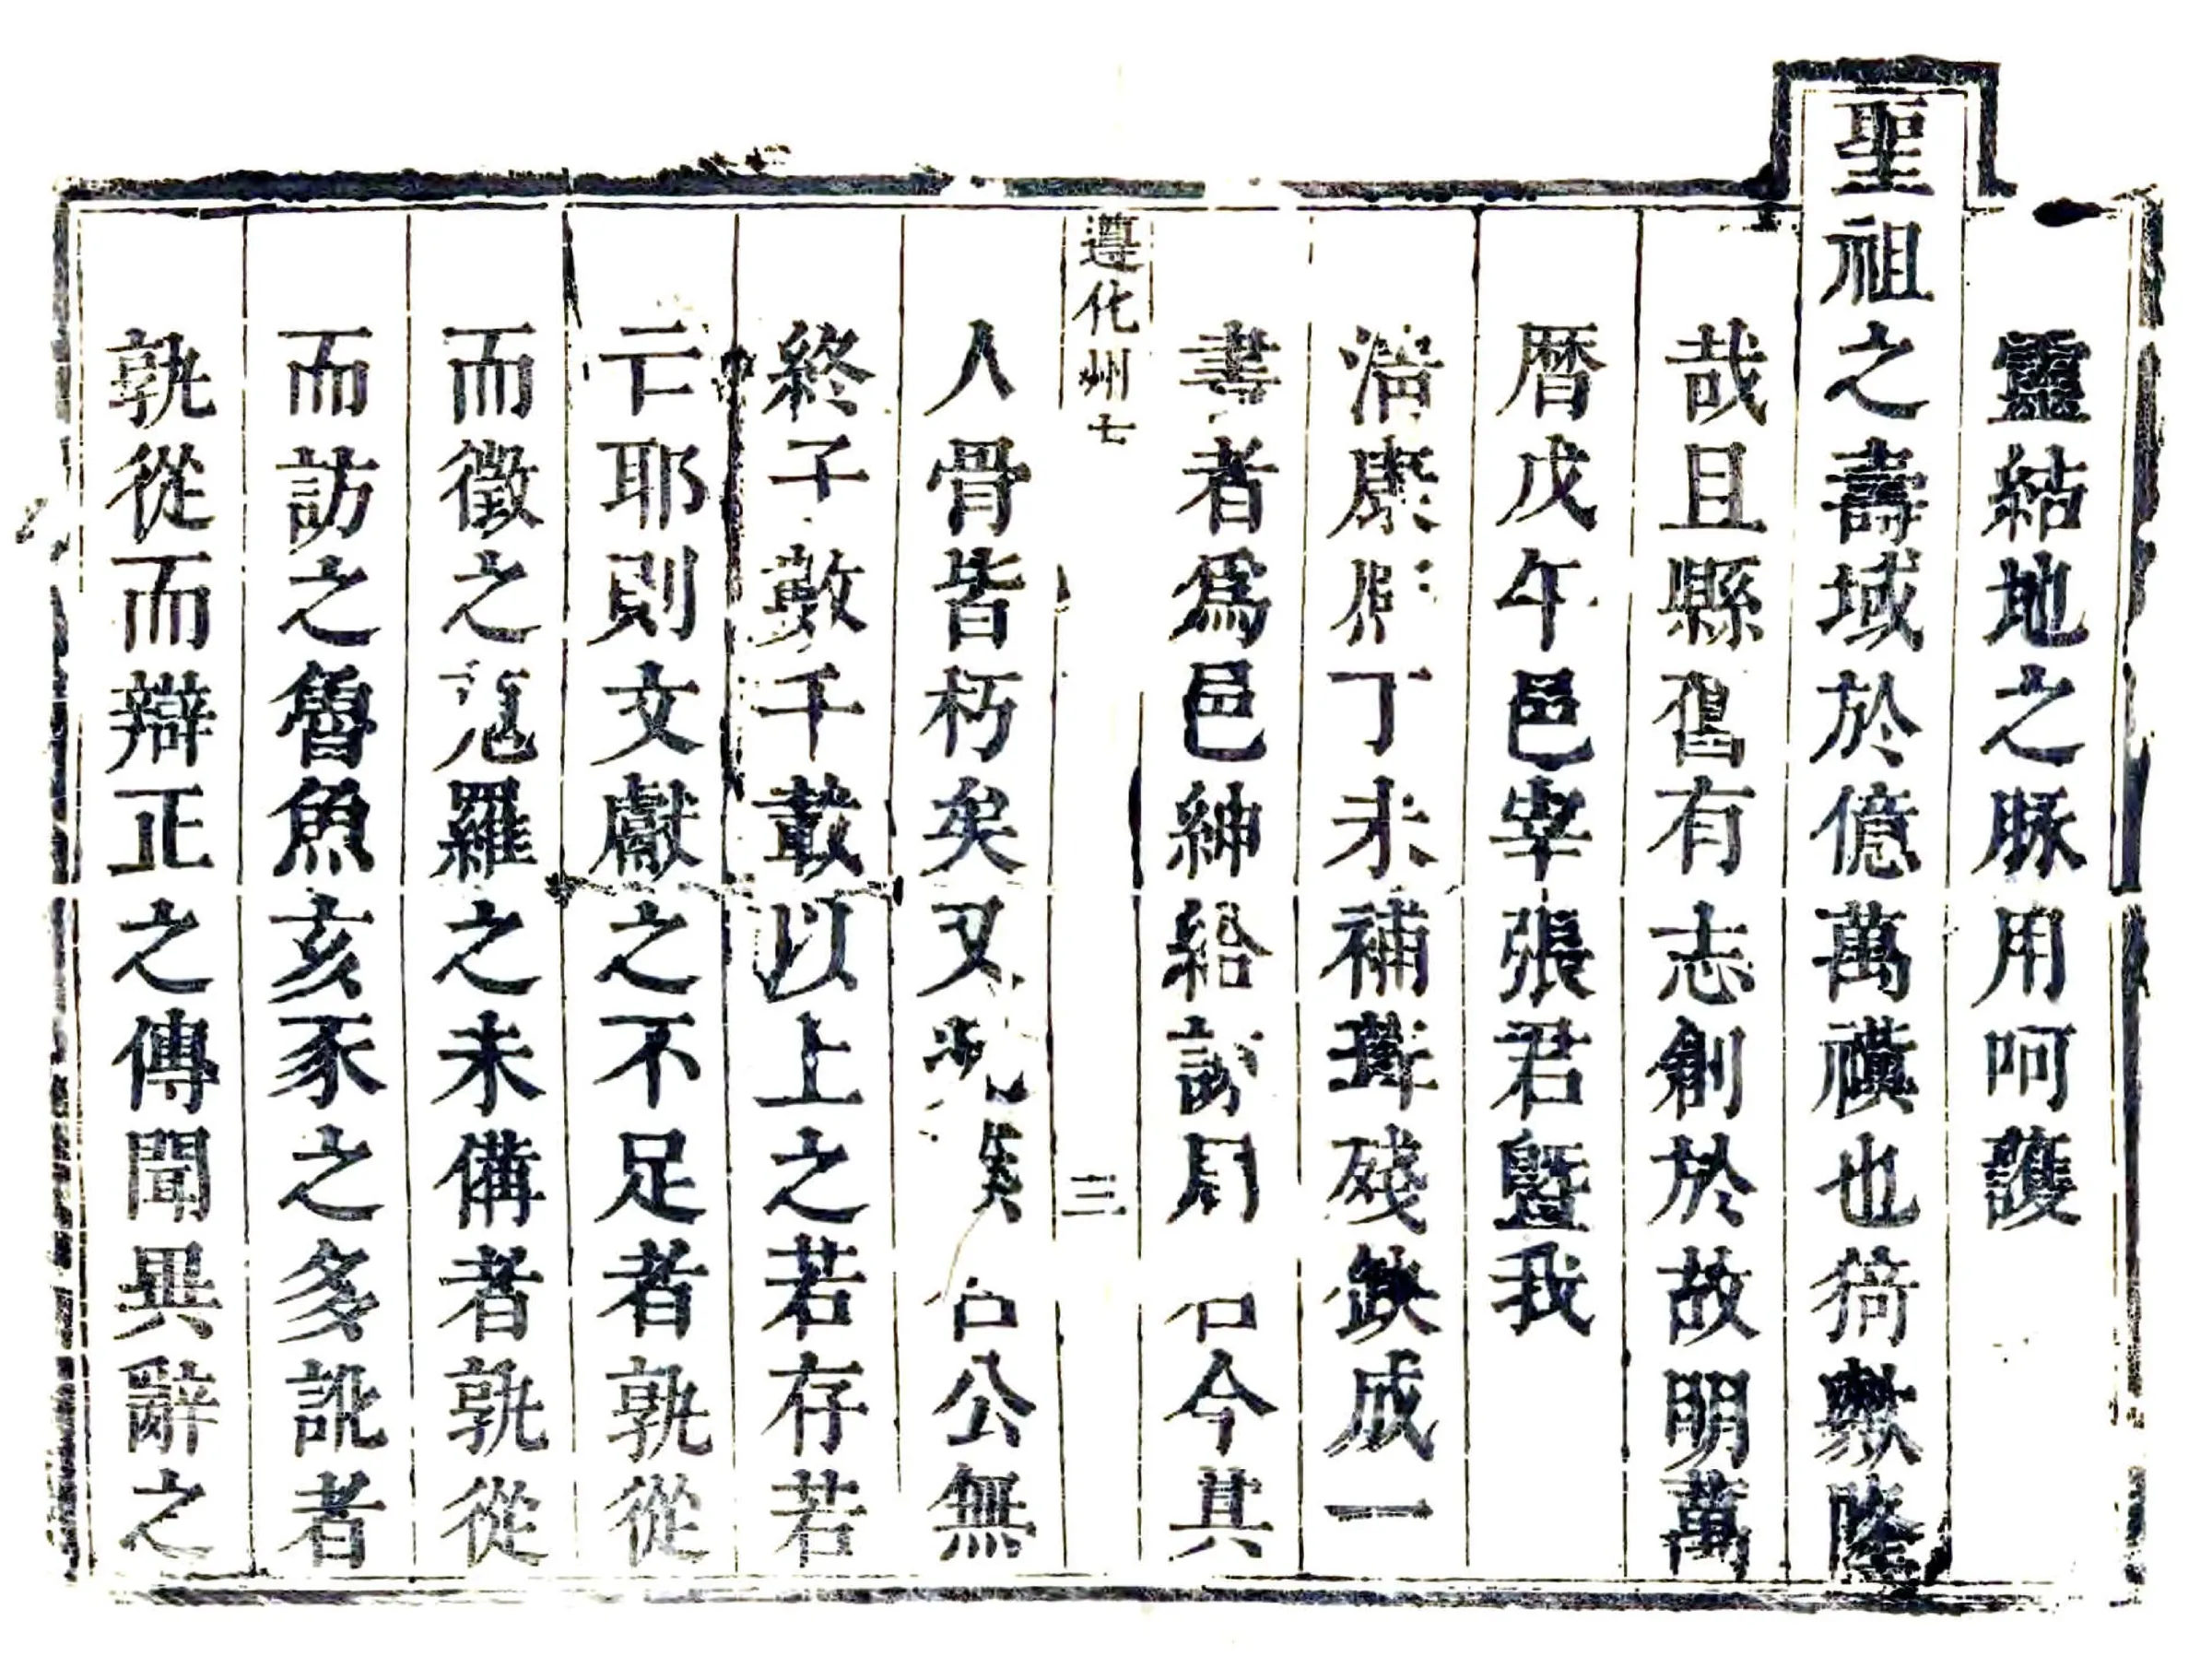 靈結地之脉用呵護
聖祖之壽域於億萬禩也猗歟隆
哉且縣舊有志創於故明萬
曆戊午邑宰張君曁我
清康 丁未補葺殘缺成一
書者爲邑紳給諫周 今其
遵化州七
三
人骨皆朽矣又 公無
終子數千載以上之若存若
亡耶則文獻之不足者孰從
而徵之冤羅之未備者孰從
而訪之魯魚亥豕之多訛者
孰從而辯正之傳聞異辭之